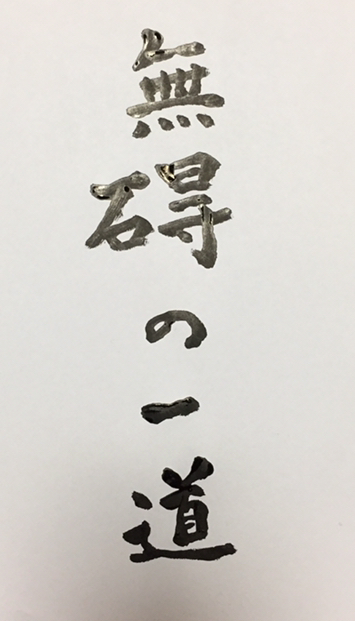 無碍の一道